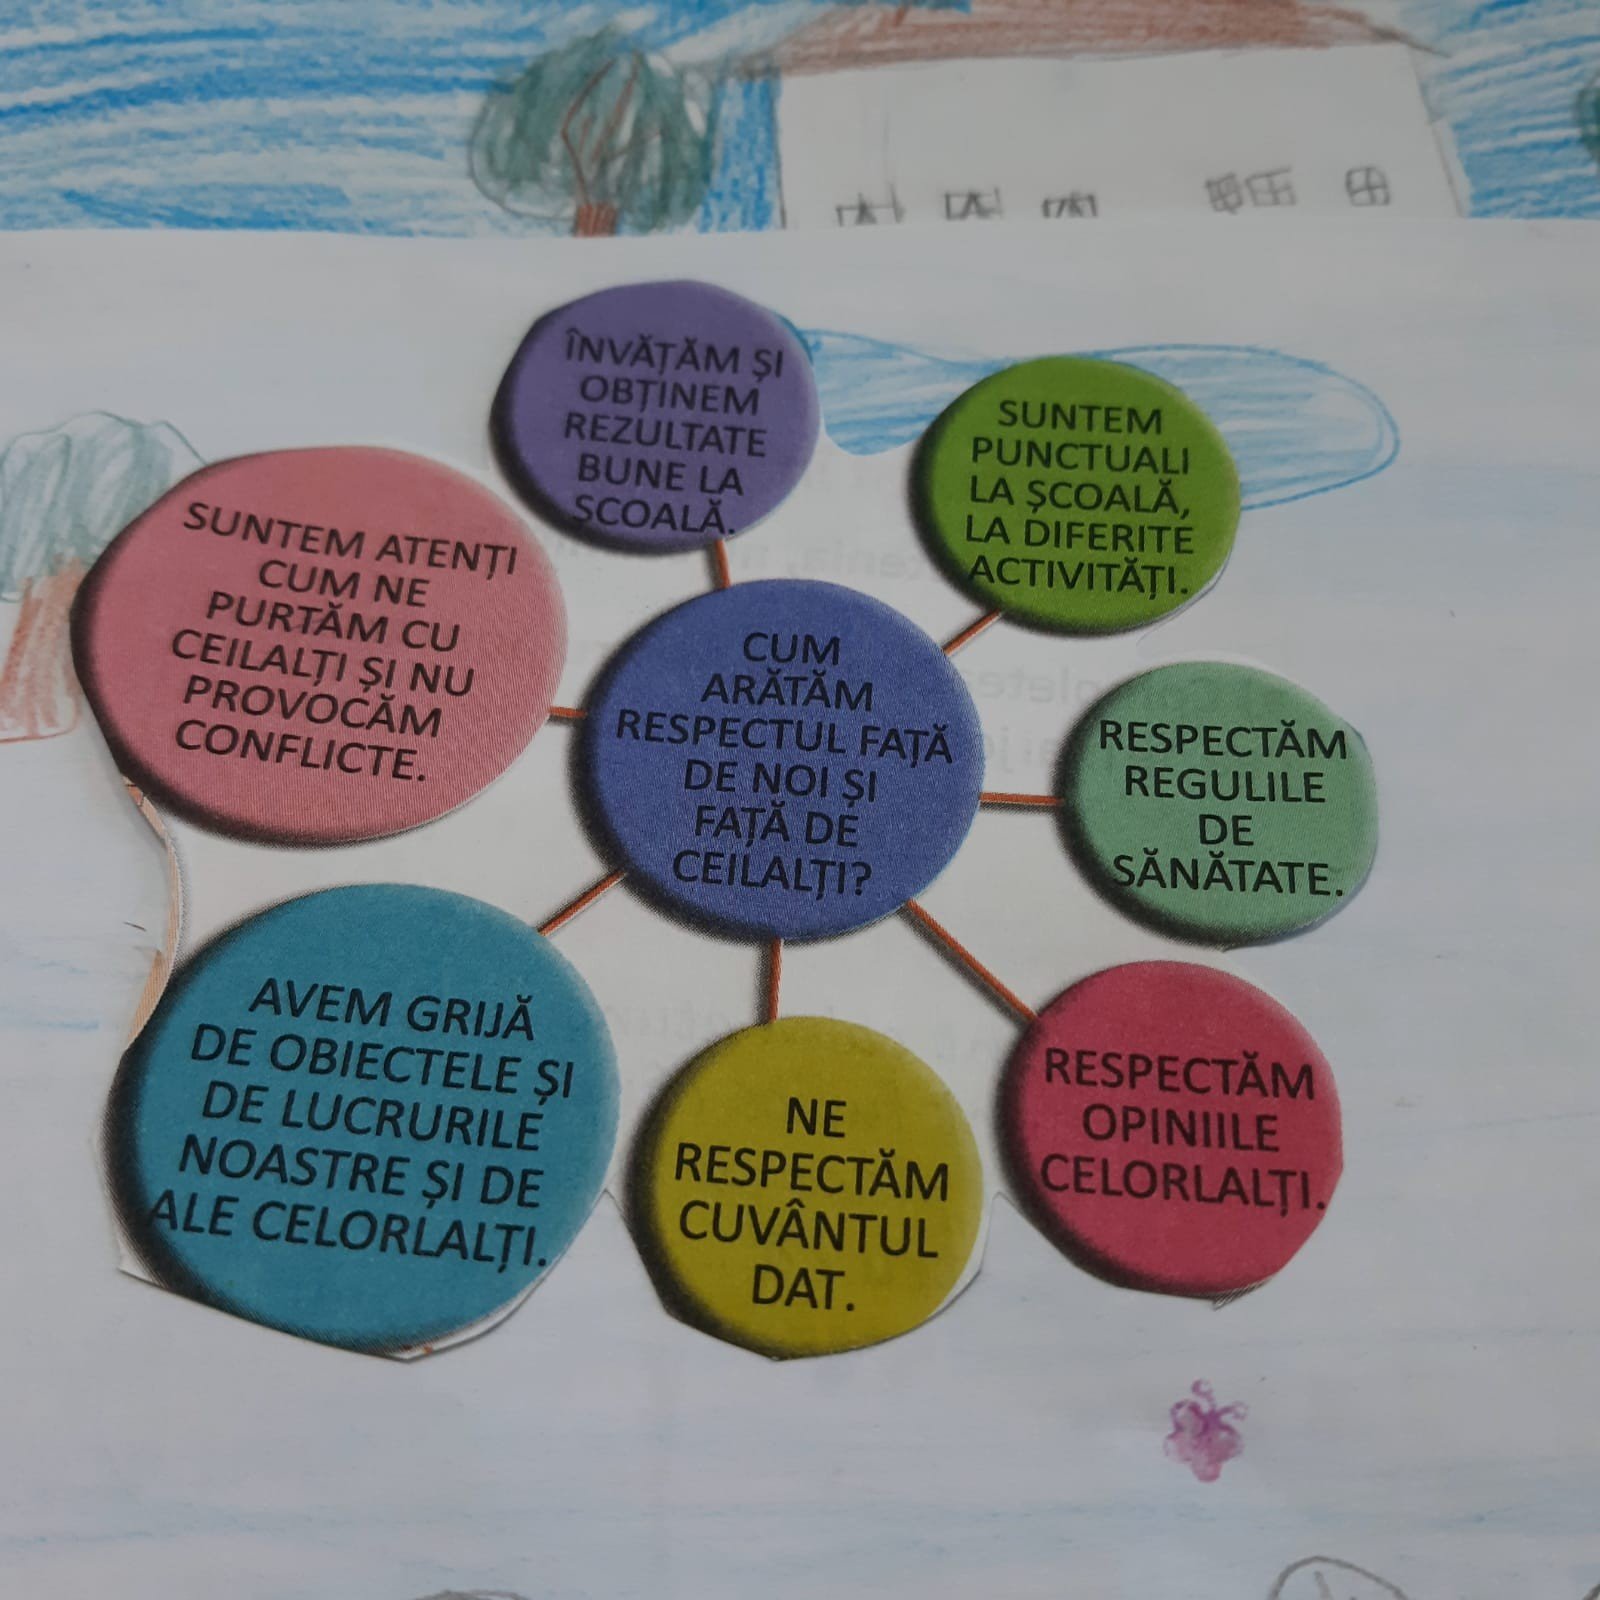 ÎNVĂȚĂM ȘI
OBȚINEM
REZULTATE
BUNE LA
ȘCOALĂ.
SUNTEM
PUNCTUALI
LA ȘCOALĂ,
LA DIFERITE
ACTIVITĂȚI.
SUNTEM ATENȚI
CUM NE
PURTĂM CU
CEILALȚI ȘI NU
PROVOCĂM
CONFLICTE.
CUM
ARĂTĂM
RESPECTUL FAȚĂ
DE NOI ȘI
FAȚĂ DE
CEILALȚI?
RESPECTĂM
REGULILE
DE
SĂNĂTATE.
AVEM GRIJĂ
DE OBIECTELE ȘI
DE LUCRURILE
NOASTRE ȘI DE
ALE CELORLALȚI.
NE
RESPECTĂM
CUVÂNTUL
DAT.
RESPECTĂM
OPINIILE
CELORLALȚI.